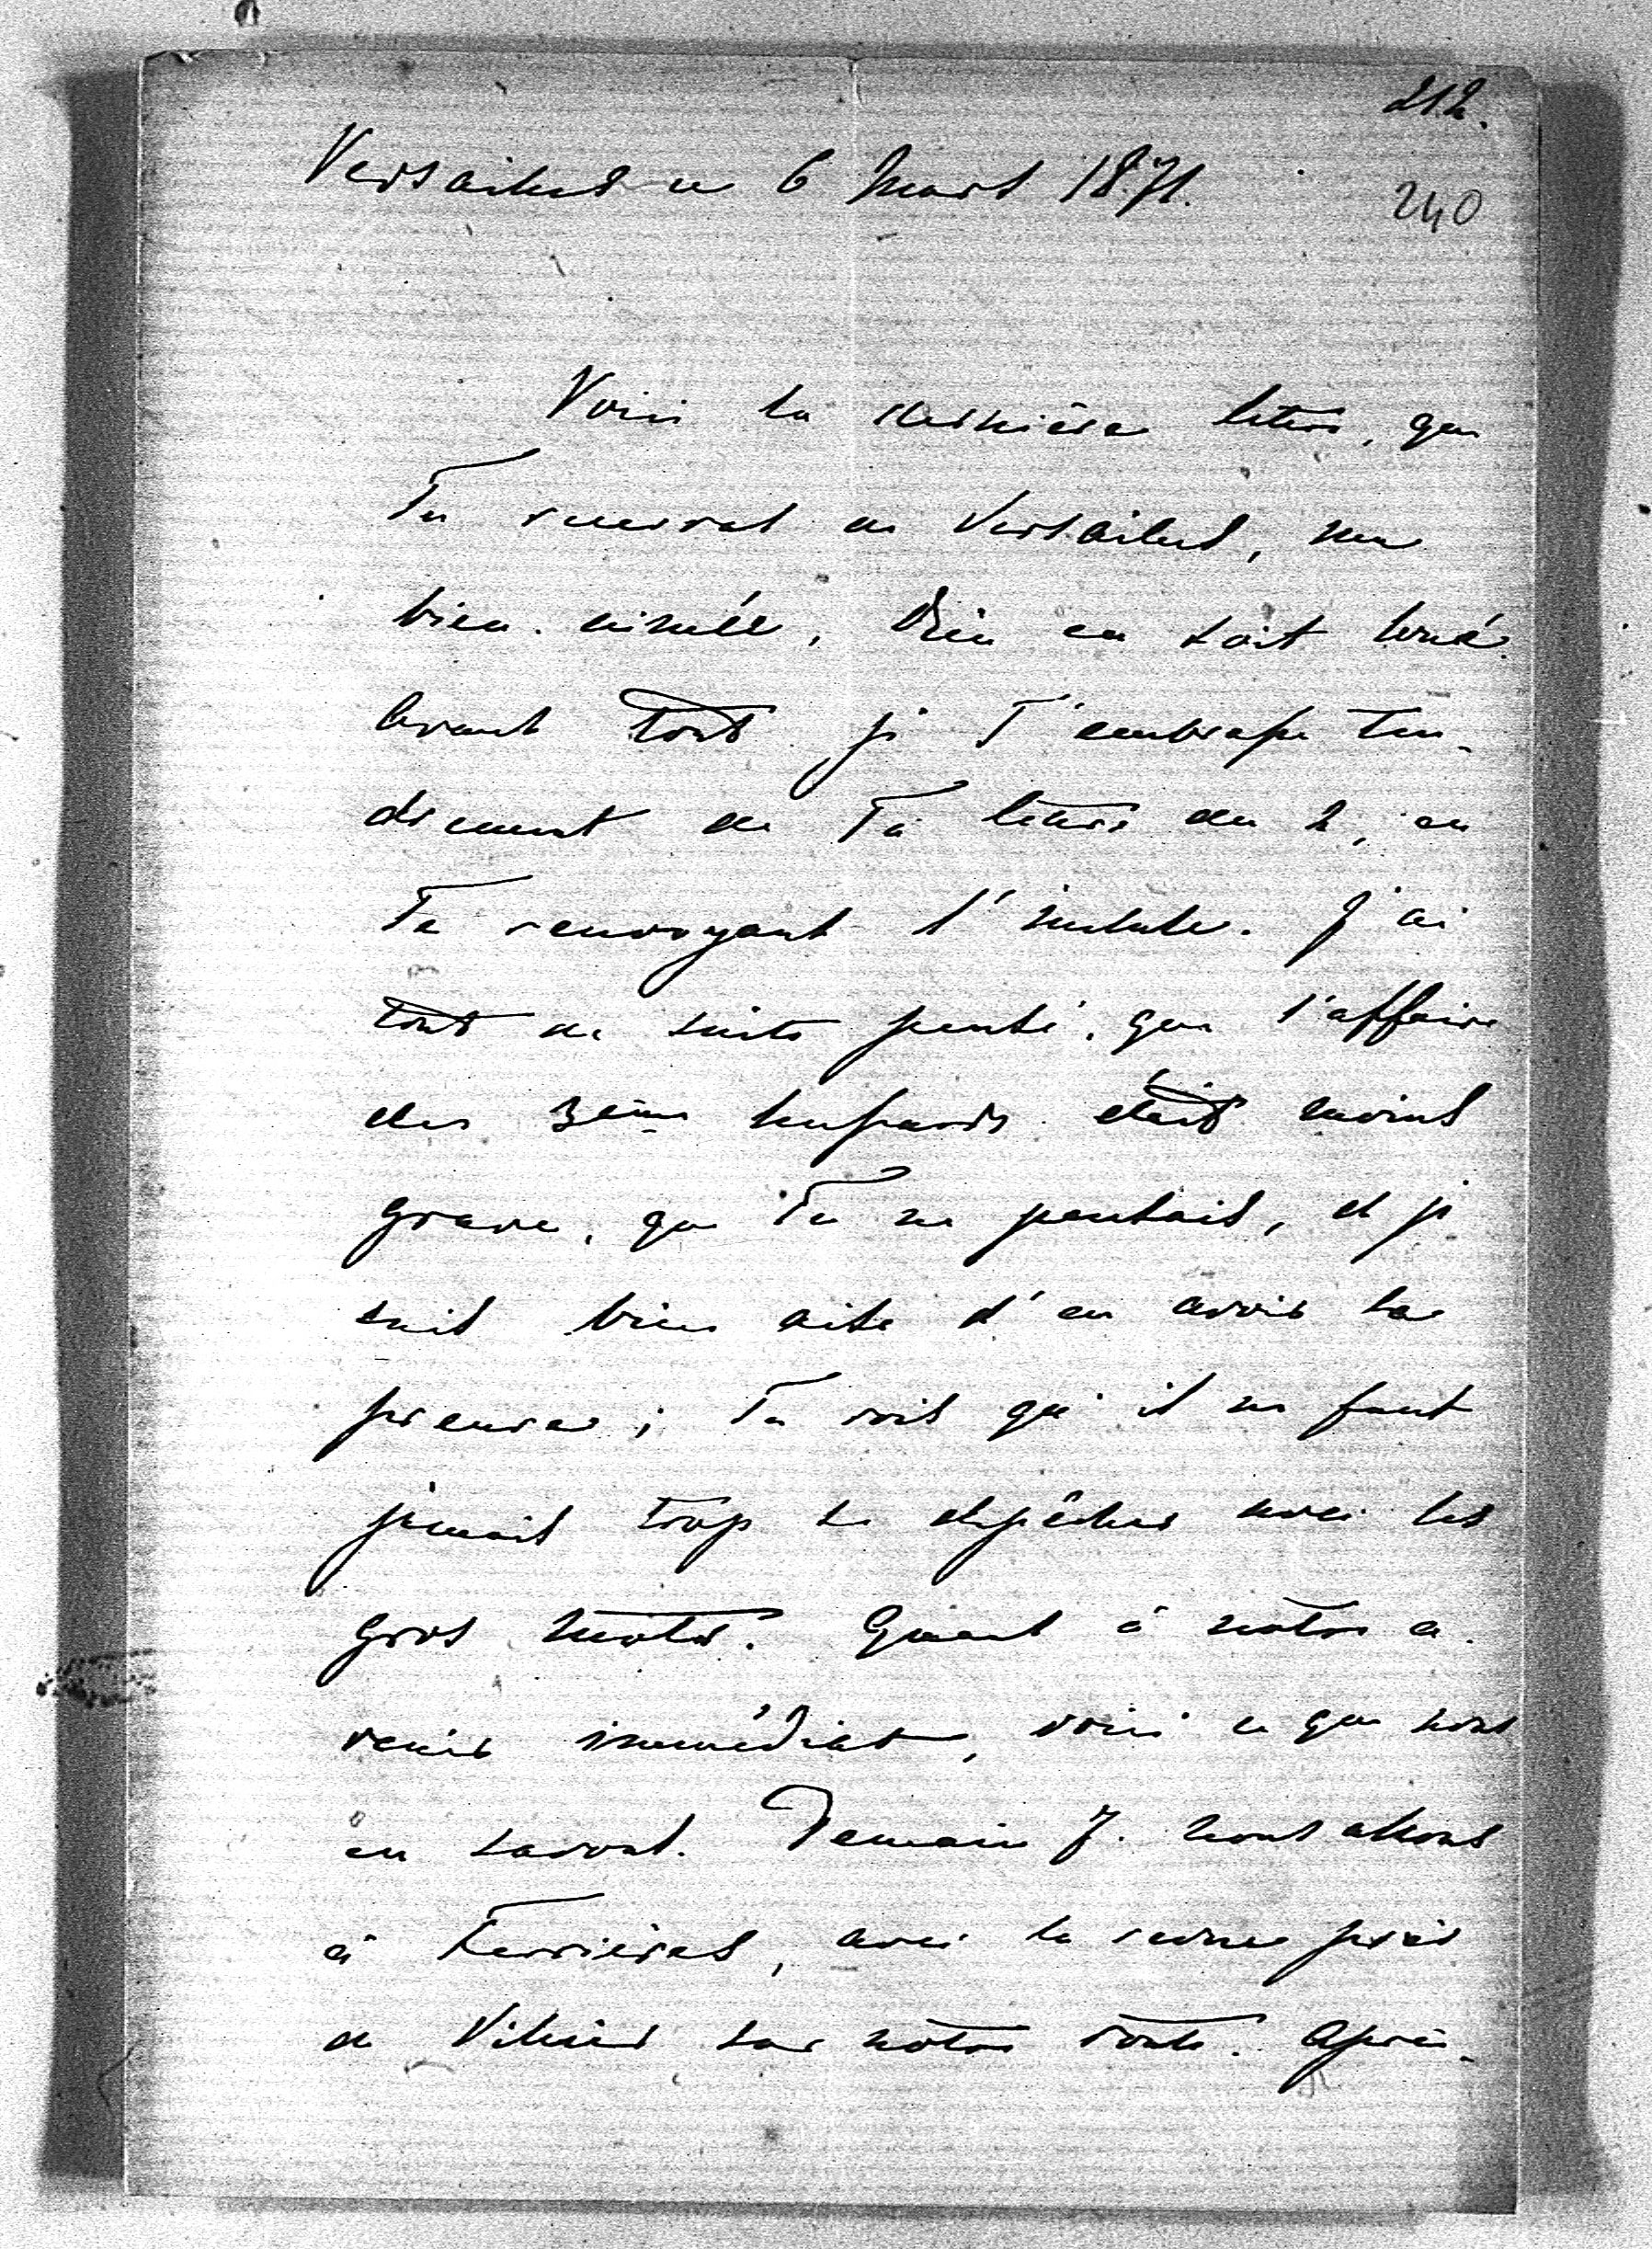 212.
Versailles ce 6 Mars 1871.
240
Voici la dernière lettre, que
Tu recevras de Versailles, ma
bien-aimée, Dieu en soit loué.
Avant tout je T'embrasse ten-
drement de Ta lettre du 2, en
Te renvoyant l'incluse. J'ai
tout de suite pensé, que l'affaire
des 3èmes hussards était moins
grave, que Tu ne pensais, et je
suis bien aise d'en avoir la
preuve; Tu vois qu'il ne faut
jamais trop se dépêcher avec les
gros mots. Quant à notre a-
venir immédiat, voici ce que nous
en savons. Demain 7. nous allons
à Ferrières, avec la revue près
de Villiers sur notre route. Après-